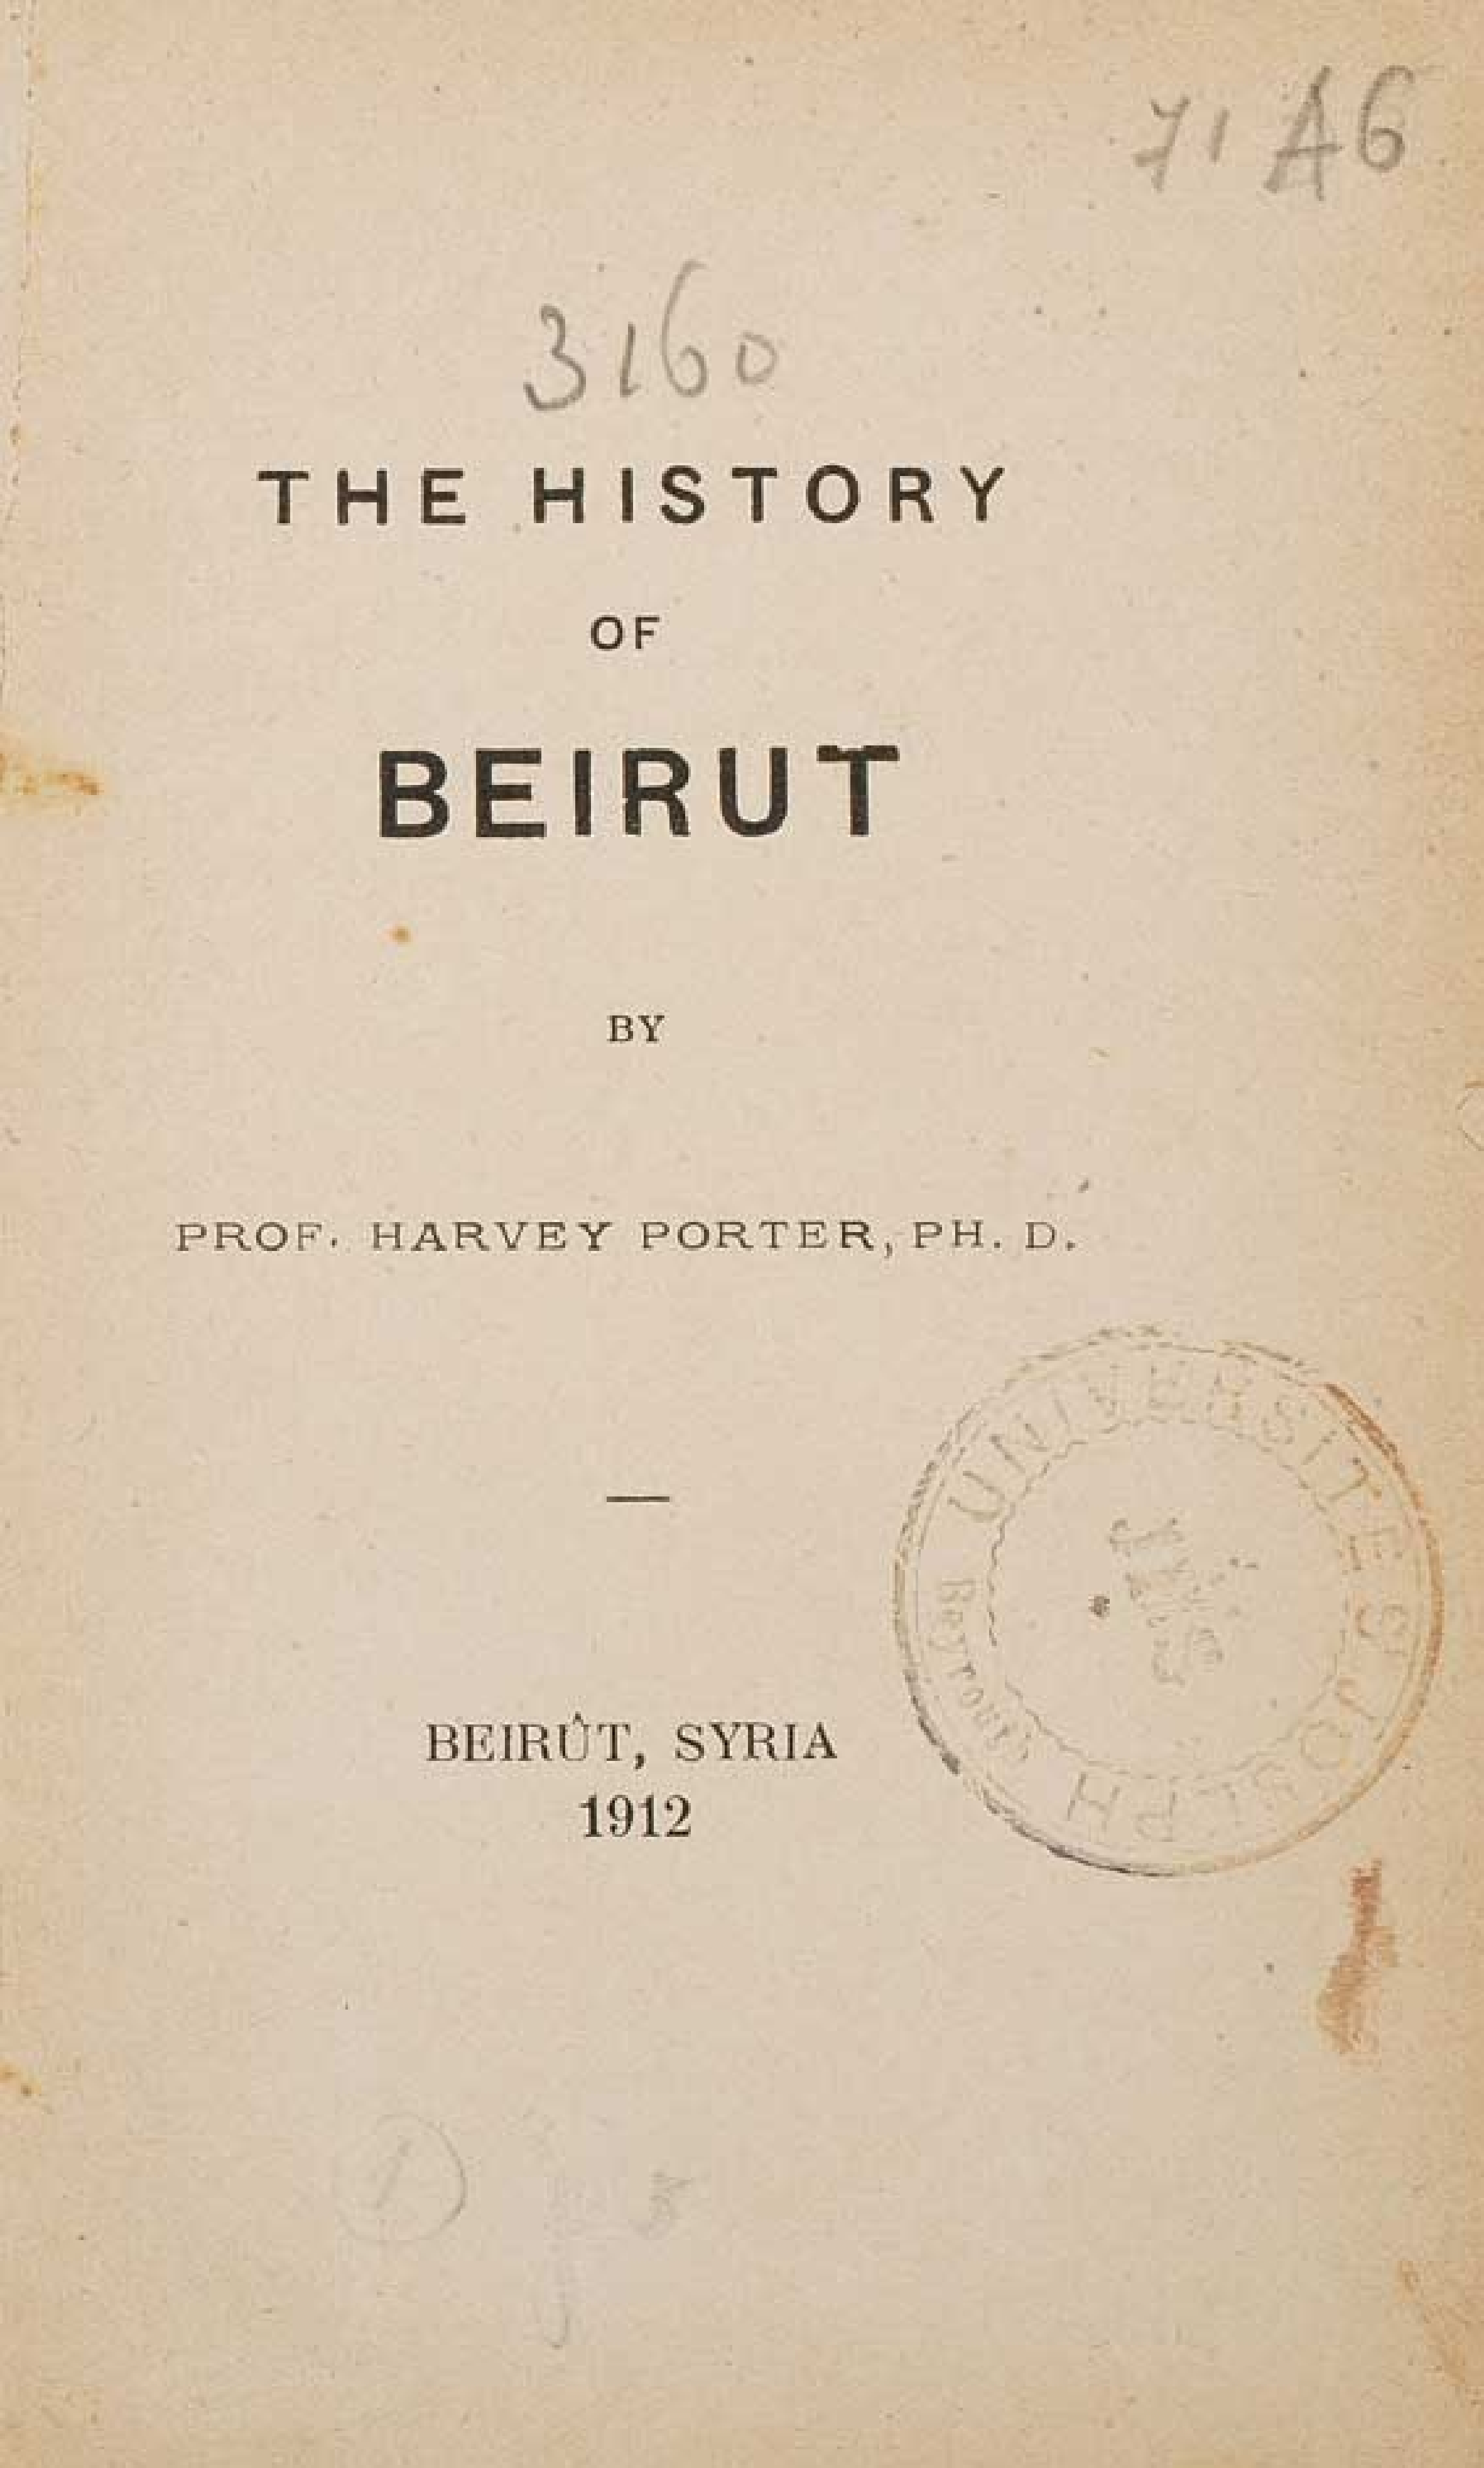 71 A6
3160
THE HISTORY
OF
BEIRUT
BY
PROF. HARVEY PORTER, PH. D.
UNIVERSITE S^T JOSEPH
Beyrouth
BEIRÛT, SYRIA
1912
1